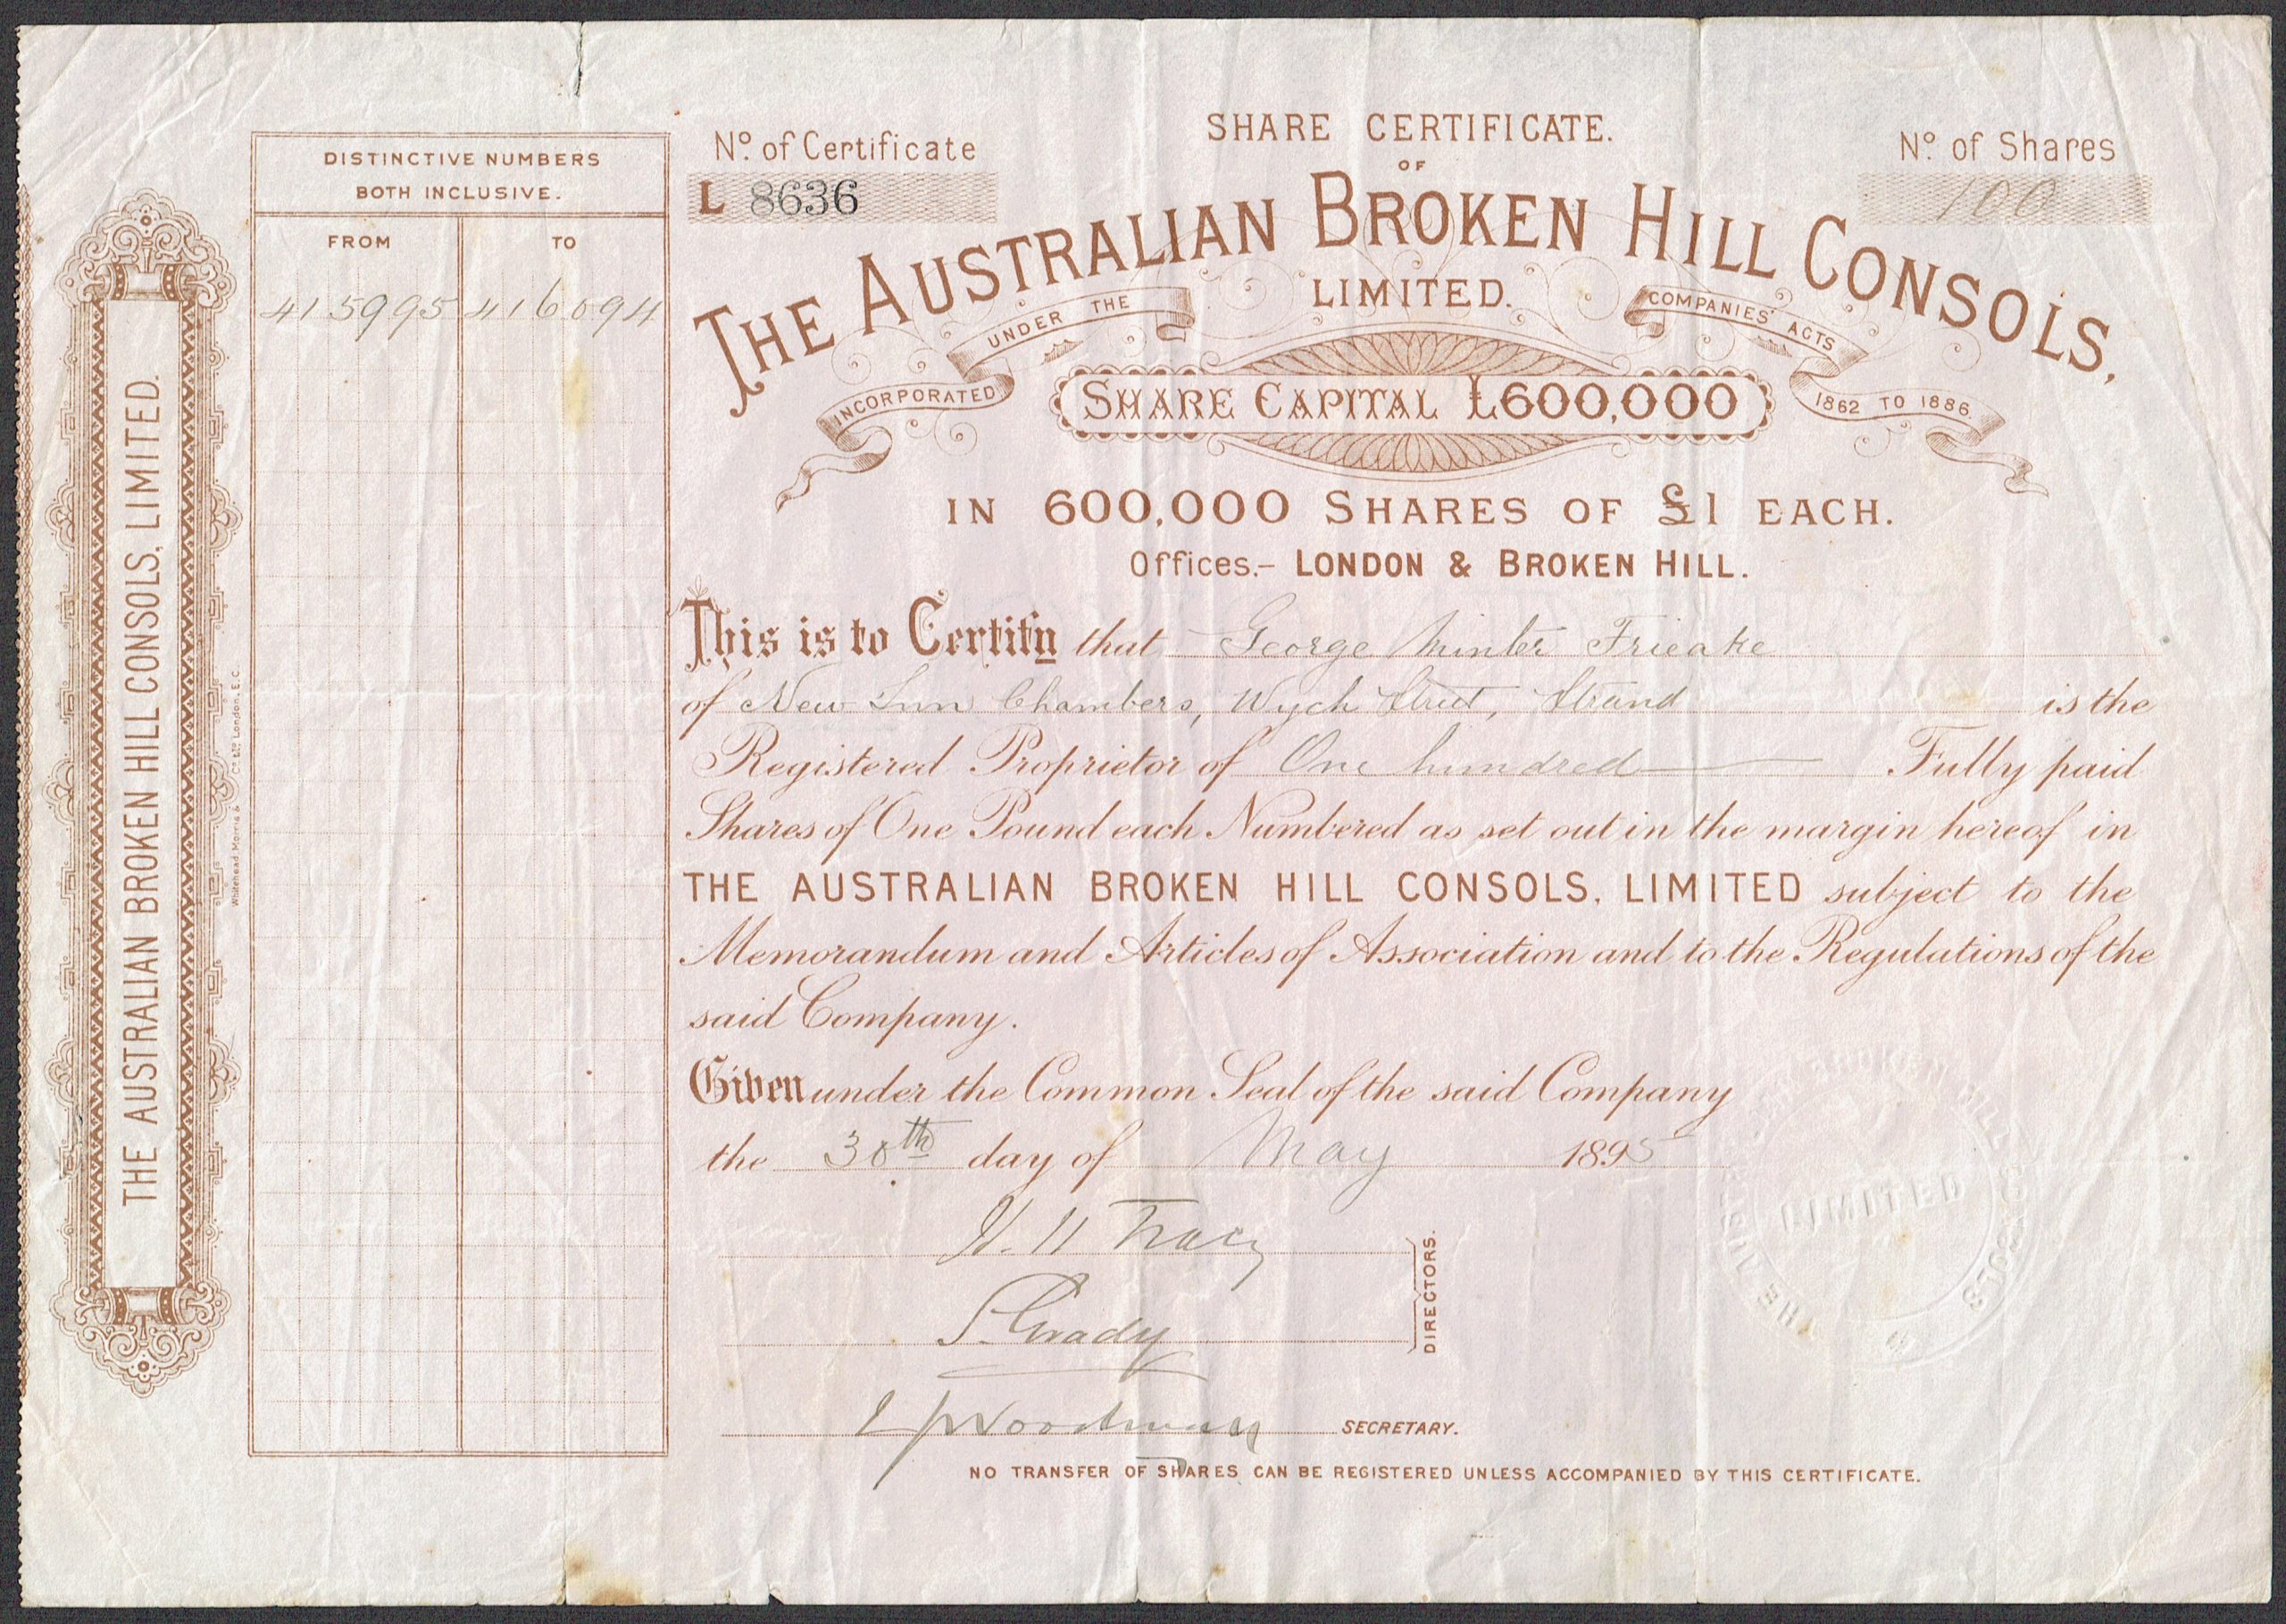 THE AUSTRALIAN BROKEN HILL CONSOLS, LIMITED.
Whitehead Morris & Co Ltd London, E.C.
DISTINCTIVE NUMBERS
BOTH INCLUSIVE.
FROM TO
415995 416094
No. of Certificate
L 8636
SHARE CERTIFICATE.
OF
No. of Shares
100
THE AUSTRALIAN BROKEN HILL CONSOLS,
LIMITED.
INCORPORATED UNDER THE COMPANIES' ACTS 1862 TO 1886.
SHARE CAPITAL £600,000
IN 600,000 SHARES OF £1 EACH.
Offices.- LONDON & BROKEN HILL.
This is to Certify that George Minter Frieake
of New Inn Chambers, Wych Street, Strand is the
Registered Proprietor of One hundred Fully paid
Shares of One Pound each Numbered as set out in the margin hereof in
THE AUSTRALIAN BROKEN HILL CONSOLS, LIMITED subject to the
Memorandum and Articles of Association and to the Regulations of the
said Company.
Given under the Common Seal of the said Company
the 30th day of May 1895
Tracy
S. Grady
DIRECTORS.
SECRETARY.
NO TRANSFER OF SHARES CAN BE REGISTERED UNLESS ACCOMPANIED BY THIS CERTIFICATE.
THE AUSTRALIAN BROKEN HILL CONSOLS
LIMITED